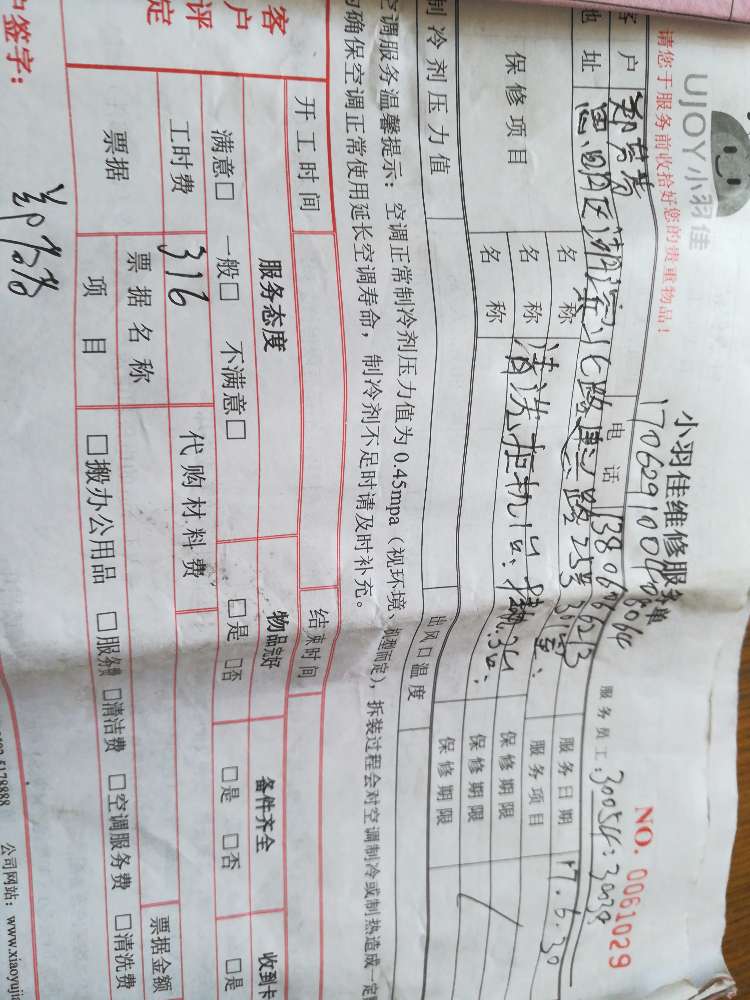 UJOY小羽佳
小羽佳维修服务单
NO. 0061029
请您于服务前收拾好您的贵重物品！
服务员工：
户
电话
服务日期 17.6.30
地址 思明区湖滨北路惠 路25号301室
服务项目
保修项目
名称
保修期限
名称 清洗挂机1台.
保修期限
名称
保修期限
制冷剂压力值
出风口温度
空调服务温馨提示：空调正常制冷剂压力值为0.45mpa（视环境、机型而定），拆装过程会对空调制冷或制热造成一定
确保空调正常使用延长空调寿命，制冷剂不足时请及时补充。
开工时间
结束时间
客户评定
服务态度
物品完好
备件齐全
收到卡
满意□ 一般□ 不满意□
□是 □否
□是 □否
□是
工时费 316
代购材料费
票据
票据名称
票据金额
项目
□搬办公用品 □服务费 □清洁费 □空调服务费 □清洗费
户签字：
5178888
公司网站：www.xiaoyujia